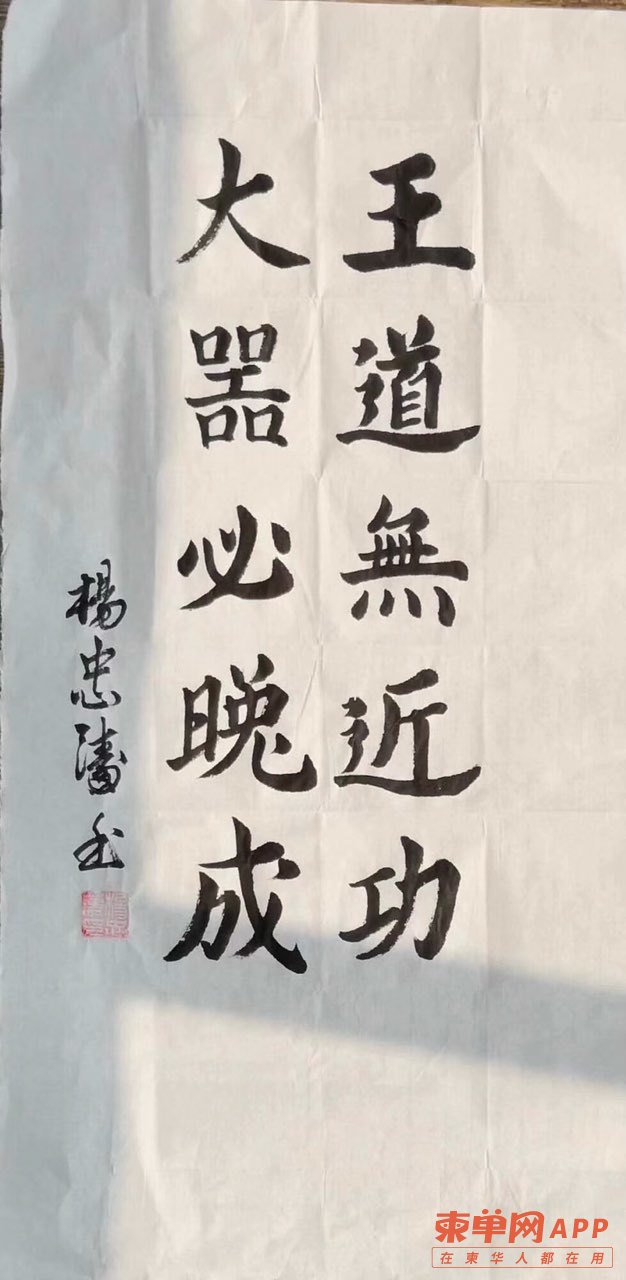 王道無近功
大器必晚成
楊忠
柬单网APP
在柬华人都在用